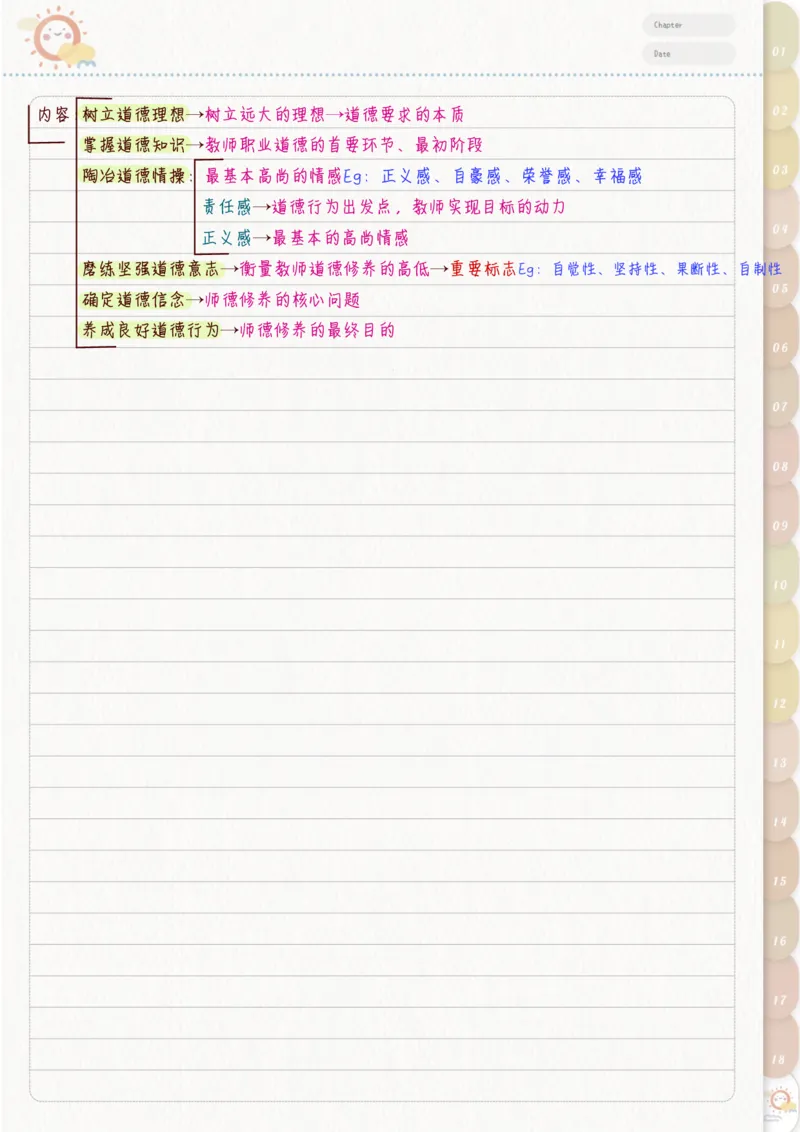 Chapter
Date
内容
树立道德理想→树立远大的理想→道德要求的本质
掌握道德知识→教师职业道德的首要环节、最初阶段
陶冶道德情操：最基本高尚的情感Eg：正义感、自豪感、荣誉感、幸福感
责任感→道德行为出发点，教师实现目标的动力
正义感→最基本的高尚情感
磨练坚强道德意志→衡量教师道德修养的高低→重要标志Eg：自觉性、坚持性、果断性、自制性
确定道德信念→师德修养的核心问题
养成良好道德行为→师德修养的最终目的
01
02
03
04
05
06
07
08
09
10
11
12
13
14
15
16
17
18